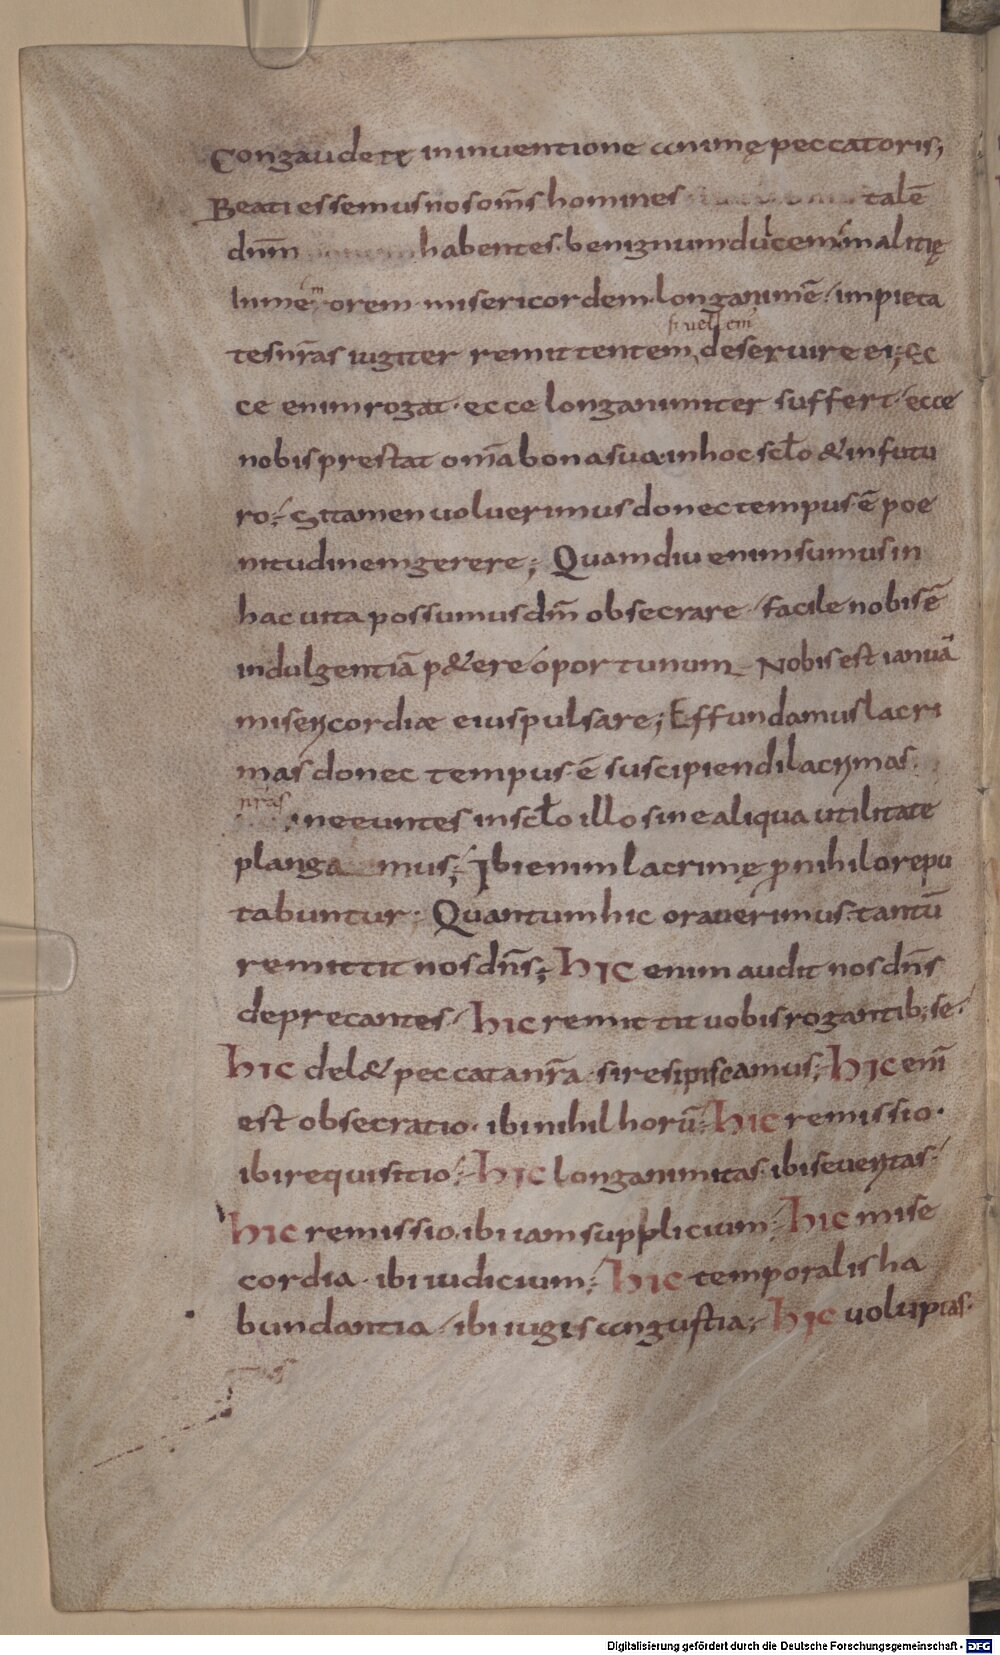 Congaudete ininuentione animę peccatoris;
Beati essemus nos om̄s homines talē
dn̄m habentes· benignum dulcem inmalitię
inmemorem misericordem· longanimē· impieta
si uellem'
tes nr̄as iugiter remittentem, deseruire ei; Ec
ce enim rogat· ecce longanimiter suffert· ecce
nobis prestat om̄a bona sua· inhoc scl̄o & infutu
ro; Si tamen uoluerimus donec tempus ē poe
nitudinem gerere; Quamdiu enim sumus in
hac uita possumus dn̄m obsecrare· facile nobis ē
indulgentiā p&ere oportunum Nobis est ianuā
misericordiæ eius pulsare; Effundamus lacri
mas donec tempus ē suscipiendi lacrymas·
nr̄as
ne euntes inscl̄o illo sine aliqua utilitate
plangamus; Ibi enim lacrimę ꝓ nihilo repu
tabuntur; Quantum hic orauerimus· tantū
remittit nos dn̄s; hic enim audit nos dn̄s
deprecantes· hic remittit uobis rogantib; se·
hic del& peccata nr̄a· si resipiscamus; hic enī
est obsecratio· ibi nihil horū; hic remissio·
ibi requisitio; hic longanimitas· ibi seueritas·
hic remissio· ibi iam supplicium; hic mise
cordia· ibi iudicium; hic temporalis ha
bundantia· ibi iugis angustia; hic uoluptas·
Digitalisierung gefördert durch die Deutsche Forschungsgemeinschaft - DFG